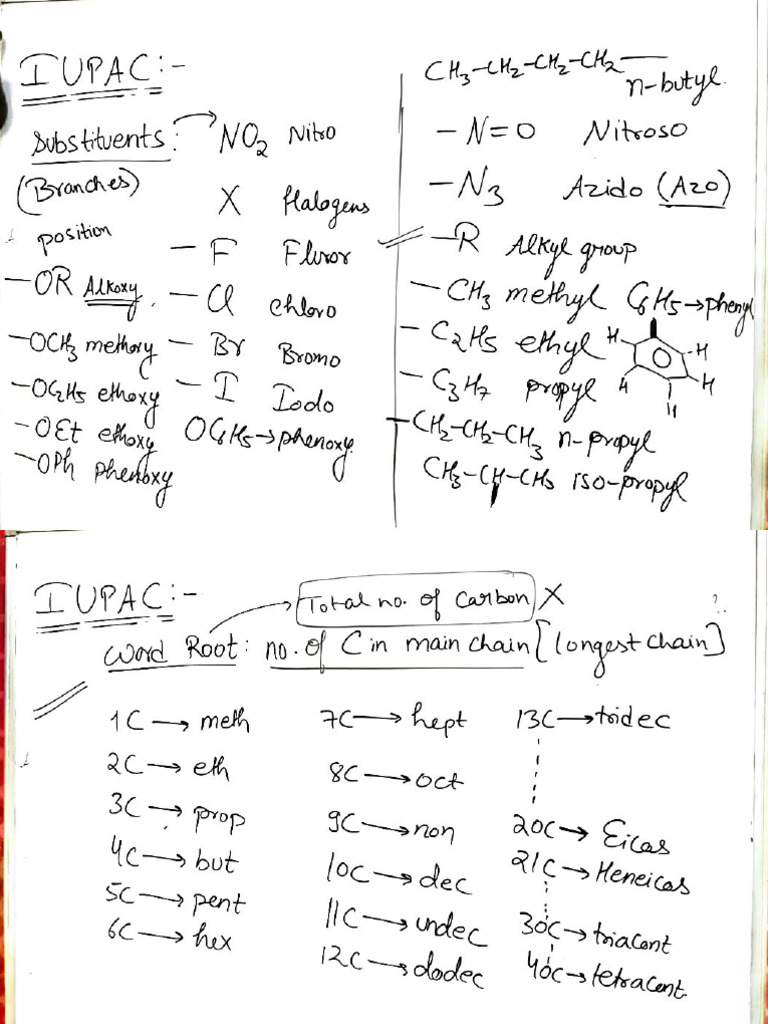 IUPAC:-
Substituents:
(Branches)
position
-OR Alkoxy,
-OCH3 methoxy
-OC2H5 ethoxy
-OEt ethoxy
-OPh phenoxy
NO2 Nitro
X Halogens
-F Fluror
-Cl chloro
-Br Bromo
-I Iodo
OC6H5→phenoxy
CH3-CH2-CH2-CH2—
n-butyl
-N=O Nitroso
-N3 Azido (Azo)
-R Alkyl group
-CH3 methyl C6H5→phenyl
-C2H5 ethyl
-C3H7 propyl
H
H
H
H
H
-CH2-CH2-CH3 n-propyl
CH3-CH-CH3 iso-propyl
IUPAC:-
Total no. of carbon X
Word Root: no. of C in main chain [longest chain]
1C → meth
2C → eth
3C → prop
4C → but
5C → pent
6C → hex
7C → hept
8C → oct
9C → non
10C → dec
11C → undec
12C → dodec
13C → tridec
20C → Eicos
21C → Heneicos
30C → triacont
40C → tetracont